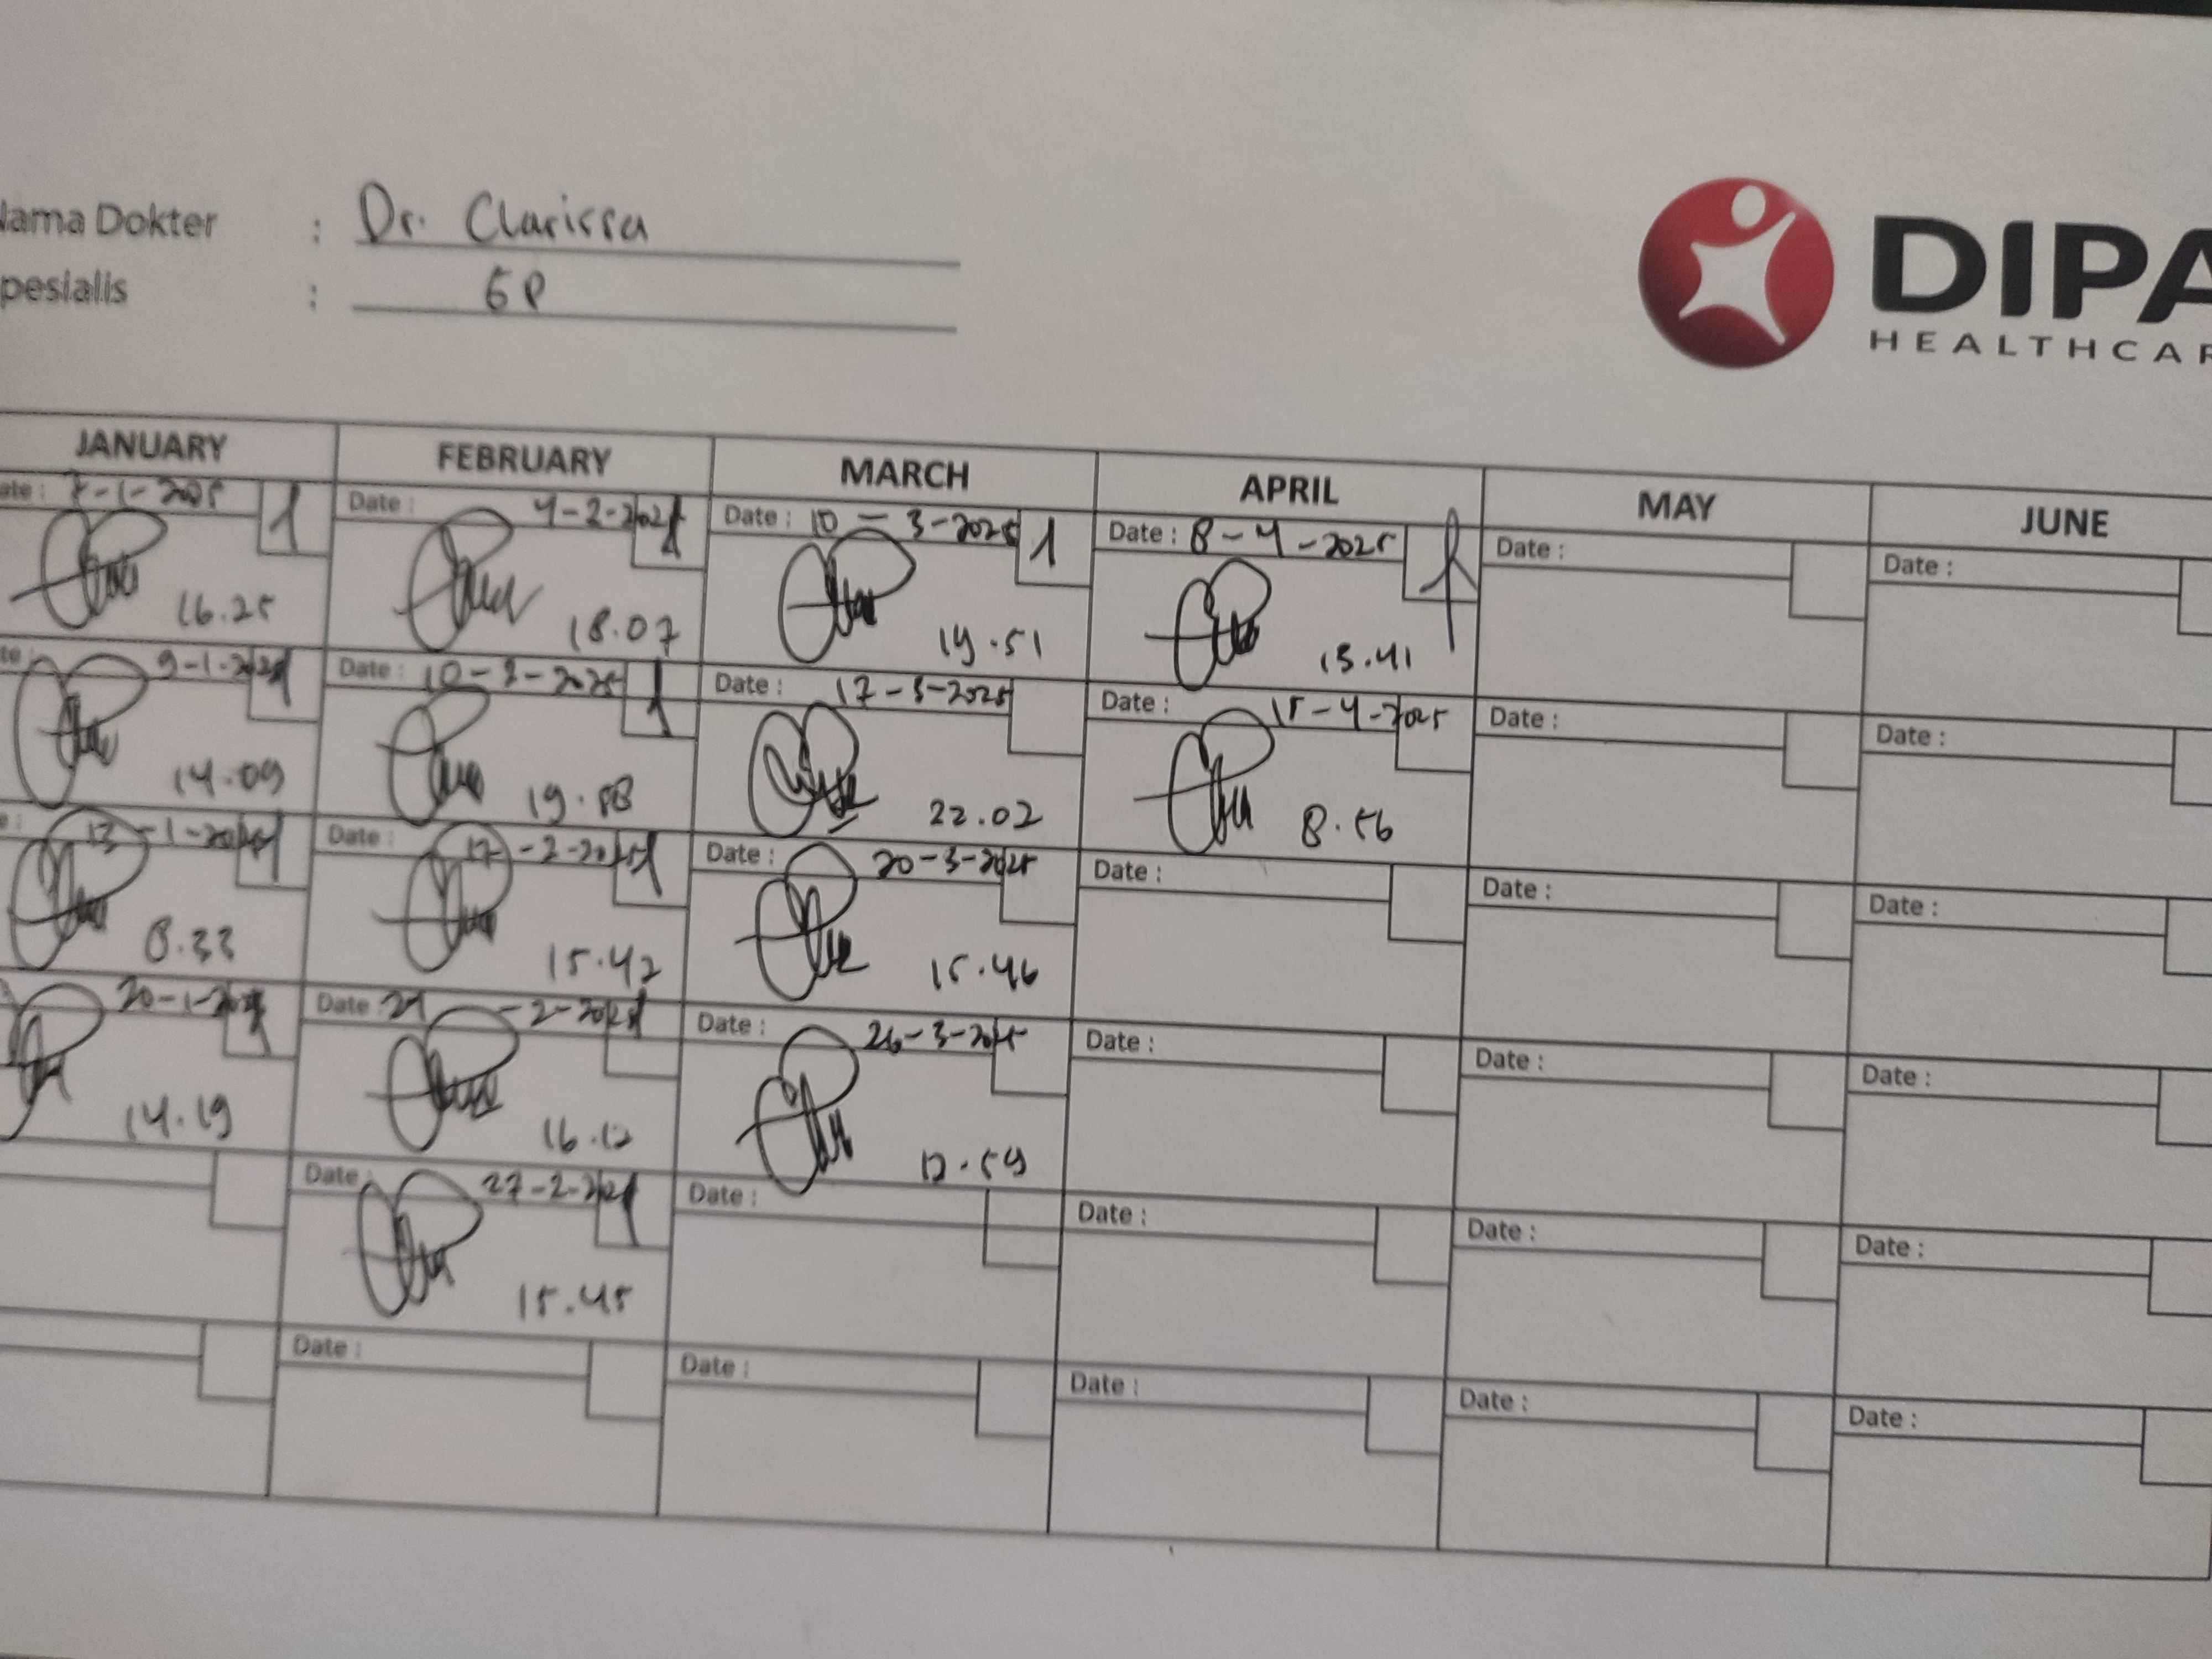 Nama Dokter : Dr. Clarissa
Spesialis : GP
DIPA
HEALTHCAR
JANUARY FEBRUARY MARCH APRIL MAY JUNE
Date : 7-1-2025 1 Date : 4-2-2025 1 Date : 10 - 3-2025 1 Date : 8-4-2025 Date : Date :
16.25 18.07 19.51 13.41
9-1-2025 Date : 10-2-2025 1 Date : 17-3-2025 Date : 15-4-2025 Date : Date :
14.09 19.58 22.02 8.56
13-1-2025 Date : 17-2-2025 Date : 20-3-2025 Date : Date : Date :
8.33 15.42 15.46
20-1-2025 Date : -2-2025 Date : 26-3-2025 Date : Date : Date :
14.19 16.12 12.59
Date : 27-2-2025 Date : Date : Date : Date :
15.45
Date : Date : Date : Date : Date :